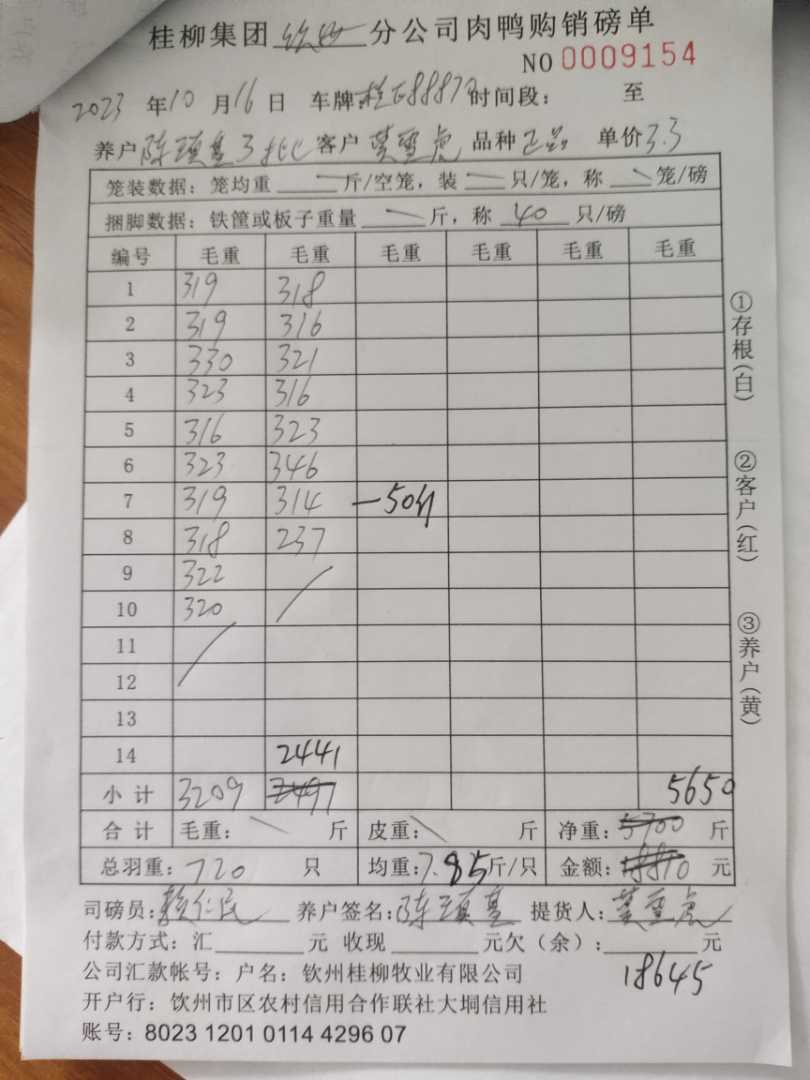 桂柳集团 钦州 分公司肉鸭购销磅单
NO 0009154
2023 年 10 月 16 日 车牌: 时间段: 至
养户 陈 3批 客户 品种 正品 单价 3.3
笼装数据:笼均重 斤/空笼,装 只/笼,称 笼/磅
捆脚数据:铁筐或板子重量 斤,称 40 只/磅
编号 毛重 毛重 毛重 毛重 毛重 毛重
1 319 318
2 319 316
3 330 321
4 323 316
5 316 323
6 323 346
7 319 314 -50斤
8 318 237
9 322
10 320
11
12
13
14 2441
小计 3209 2491 5650
合计 毛重: 斤 皮重: 斤 净重:5700 斤
总羽重:720 只 均重:7.85 斤/只 金额:18810 元
司磅员: 养户签名: 提货人:
付款方式:汇 元 收现 元欠(余): 元
18645
公司汇款帐号:户名:钦州桂柳牧业有限公司
开户行:钦州市区农村信用合作联社大垌信用社
账号:8023 1201 0114 4296 07
①存根(白)
②客户(红)
③养户(黄)